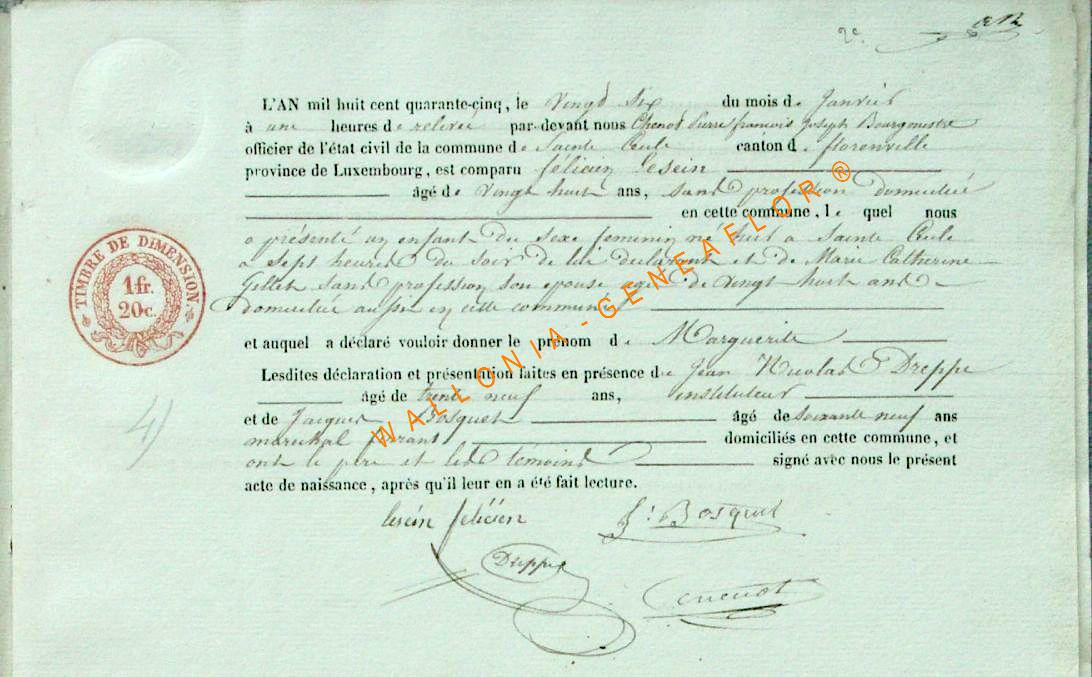 2e.
L'AN mil huit cent quarante-cinq, le vingt six du mois de Janvier
à une heures de relevée par-devant nous Chenot Pierre françois Joseph Bourgmestre
officier de l'état civil de la commune de Sainte Cecile canton de florenville
province de Luxembourg, est comparu félicien Lesein
âgé de vingt huit ans, sans profession domicilié
en cette commune, le quel nous
a présenté un enfant du sexe feminin né hier a Sainte Cecile
a sept heures du soir de lui declarant et de Marie Catherine
Gillet sans profession son epouse agée de vingt huit ans
domiciliée aussi en cette commune
et auquel a déclaré vouloir donner le prénom de Marguerite
Lesdites déclaration et présentation faites en présence de Jean Nicolas Dreppe
âgé de trente neuf ans, instituteur
et de Jacques Bosquet âgé de soixante neuf ans
marechal ferrant domiciliés en cette commune, et
ont le père et les témoins signé avec nous le présent
acte de naissance, après qu'il leur en a été fait lecture.
TIMBRE DE DIMENSION.
1 fr.
20 c.
4
lesein félicien
J: Bosquet
Dreppe
Chenot
WALLONIA - GENEAFLOR ®